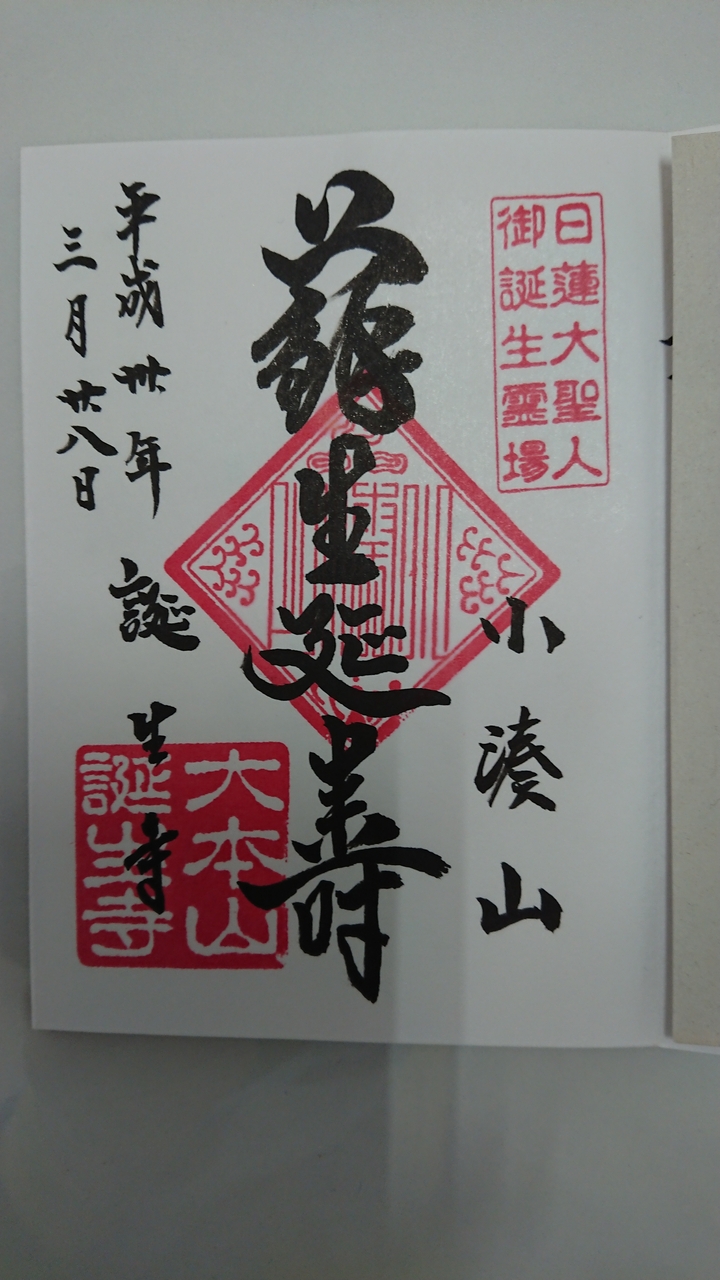 日蓮大聖人
御誕生霊場
小湊山
蘇生延寿
平成卅年
三月廿八日
誕生寺
大本山
誕生寺